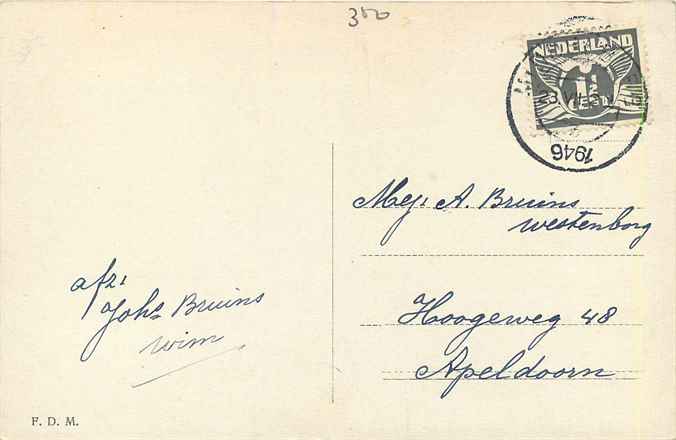 350
NEDERLAND
1½
CENT
1946
Mej: A. Bruins
westenborg
Hoogeweg 48
Apeldoorn
afz:
Johs Bruins
wim
F. D. M.